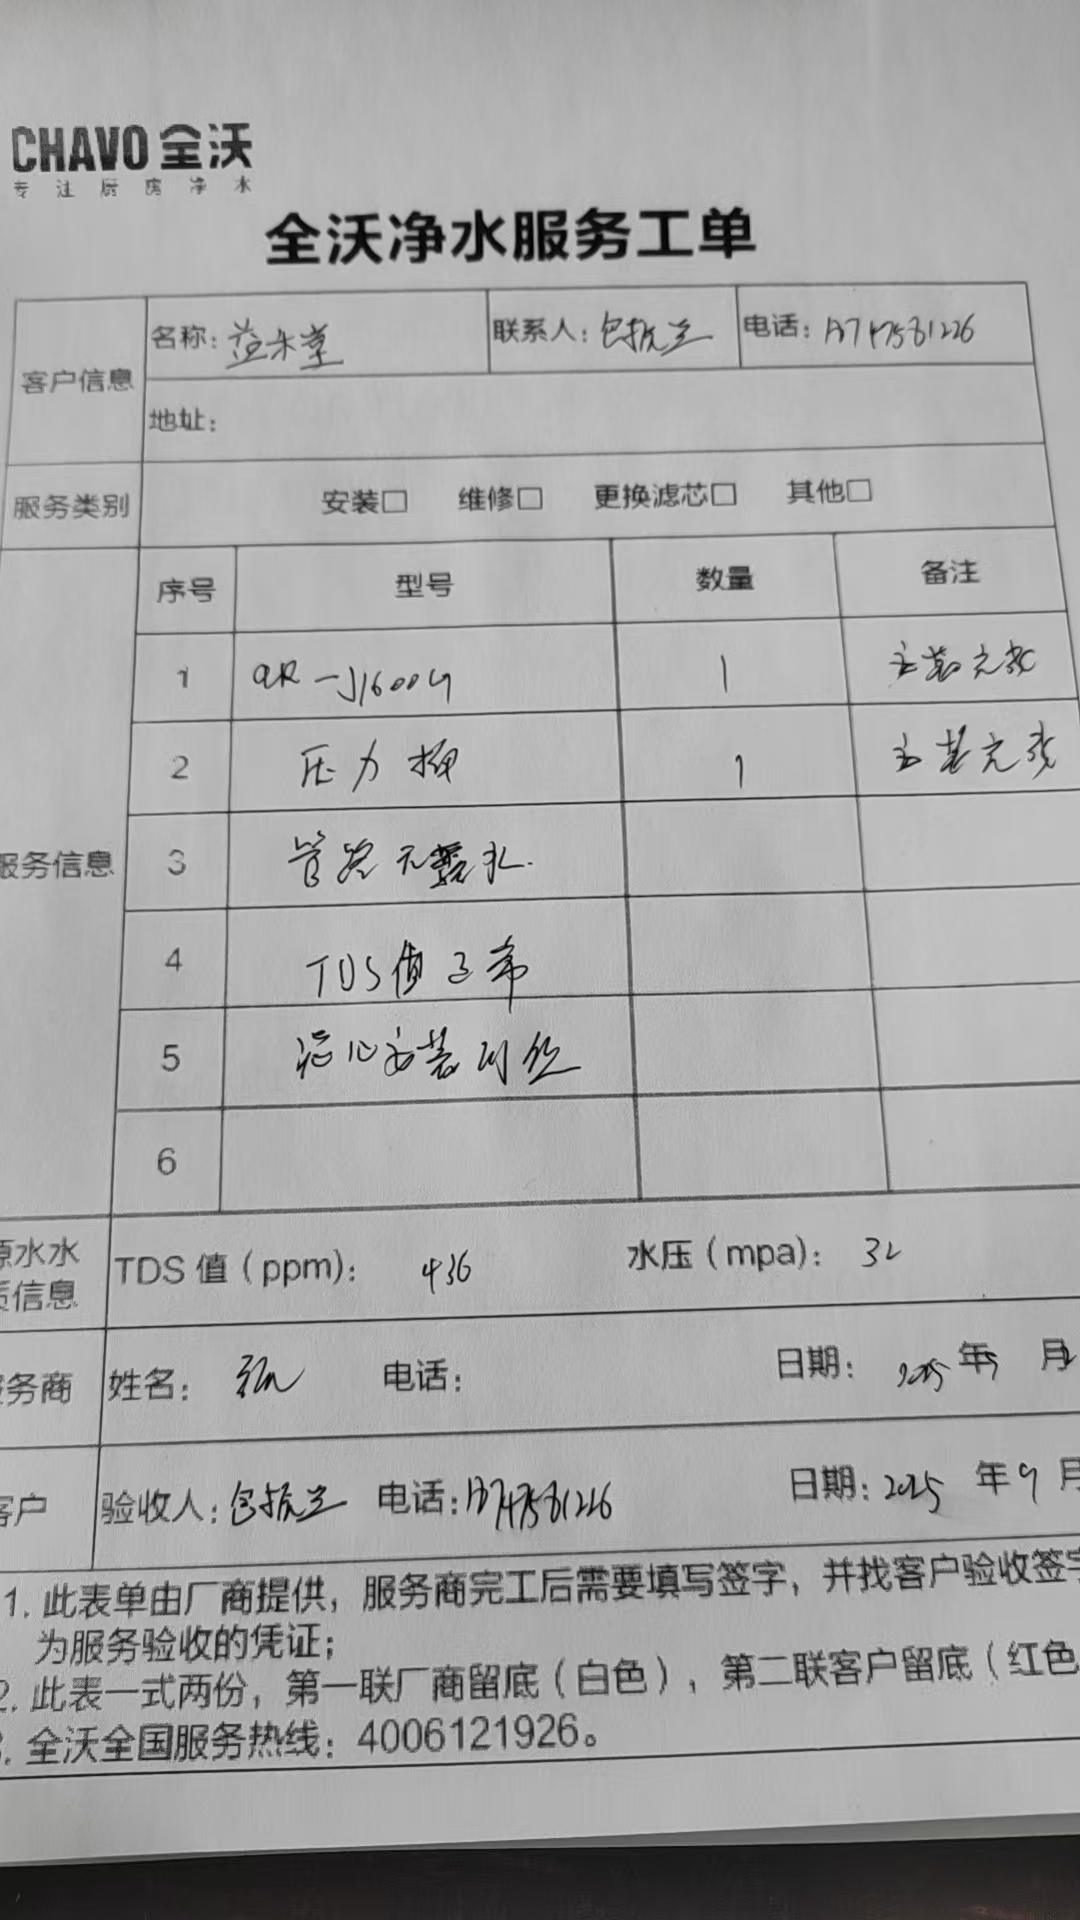 CHAVO 全沃
专注厨房净水
全沃净水服务工单
客户信息 名称：益禾堂 联系人：包振兰 电话：
地址：
服务类别 安装□ 维修□ 更换滤芯□ 其他□
序号 型号 数量 备注
1 QR-J1600G 1 安装完成
2 压力桶 1 安装完成
服务信息 3 管路无露水.
4 TDS值正常
5 滤心安装到位
6
源水水质信息 TDS 值（ppm）： 436 水压（mpa）： 32
服务商 姓名： 电话： 日期： 2025 年 9 月
客户 验收人：包振兰 电话： 日期：2025 年 9 月
1. 此表单由厂商提供，服务商完工后需要填写签字，并找客户验收签字
为服务验收的凭证；
2. 此表一式两份，第一联厂商留底（白色），第二联客户留底（红色
3. 全沃全国服务热线：4006121926。